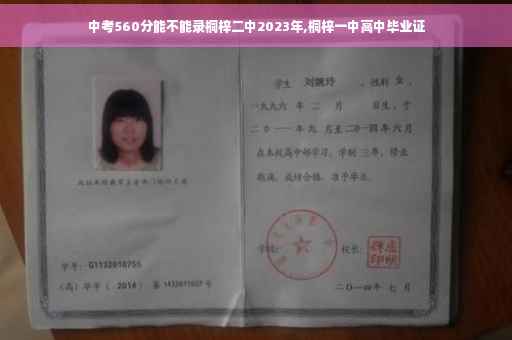 中考560分能不能录桐梓二中2023年,桐梓一中高中毕业证
学生 刘婉玲 ，性别 女 ，
一九九六 年 二 月 日生，于
二0一一 年 九 月至 二0一四年 六 月
在本校高中部学习，学制 三年，修业
期满，成绩合格，准予毕业。
学校：
校长：
学号： G1132010755
（高）毕字（ 2014 ）第 1432011007 号
二〇一四年 七 月